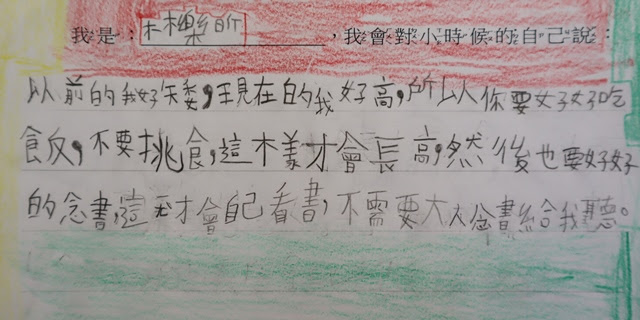 我是:木樂昕,我會對小時候的自己說:
以前的我好矮,現在的我好高,所以你要好好吃
飯,不要挑食,這樣才會長高,然後也要好好
的念書,這天才會自己看書,不需要大人念書給我聽。